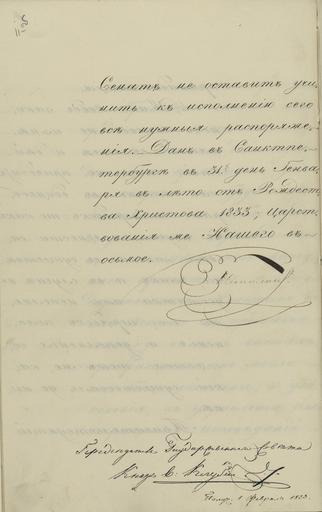 Сенатъ не оставитъ учи-
нить къ исполненію сего
всѣ нужныя распоряже-
нія. Данъ въ Санктпе-
тербургѣ въ 31й день Генва-
ря въ лѣто отъ Рождест-
ва Христова 1833, Царст-
вованія же Нашего въ
осьмое.
Николай.
Предсѣдатель Государственнаго Совѣта
Князь В. Кочубей
1 Февраля 1833.